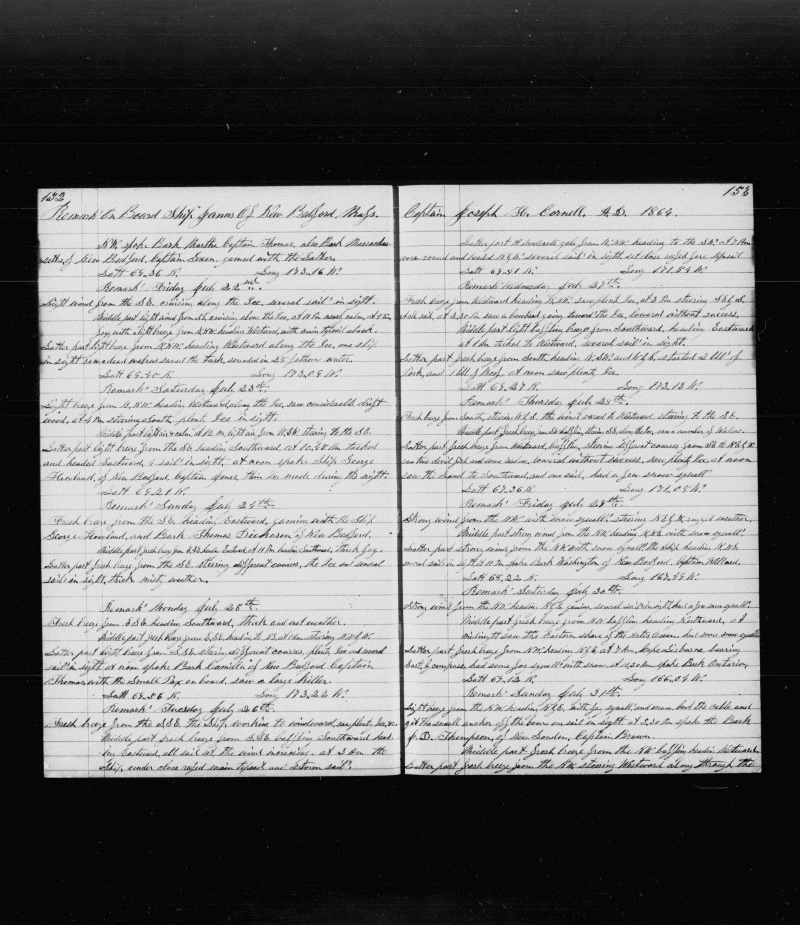 152
Remark's On Board Ship James Of New Bedford, Mass.
N.W. spoke Bark Martha Captain Thomas, also Bark Massachu-
setts of New Bedford, Captain gamed with the Latter.
Latt 69.36 N. Long 173.16 W.
Remark's Friday July 22nd.
Light wind from the S.E. cruising along the Ice, several sail's in sight.
Middle part light wind from S.E. cruising along the Ice, at 11 Pm nearly calm, at
fog with light breeze from N.N.W. heading Westward, with main topsail aback.
Latter part light breeze from N.N.W. heading Westward along the Ice, one ship
in sight saw a dead walrus sounded in 25 fathom water.
Latt 69.40 N. Long 173.09 W.
Remark's Saturday July 23rd.
Light breeze from N.N.W. heading Westward, along the Ice, saw considerable drift
wood, at 4 Pm steering South, plenty Ice in sight.
Middle part light air & calm, at 12 m. light air from W.S.W. steering to the S.E.
Latter part light breeze from the S.E. heading Southward, at 10.30 Am tacked
and headed Eastward, 4 sail's in sight, at noon spoke Ship George
Howland, of New Bedford Captain Jones thin Ice made during the night.
Latt 69.21 N.
Remark's Sunday July 24th.
Fresh breeze from the S.E. heading Eastward, gaming with the Ship
George Howland, and Bark Thomas Dickason of New Bedford.
Middle part fresh breeze from S.S.E. heading Eastward, at 11 Pm heading Southward, thick fog.
Latter part fresh breeze from the S.E. steering different courses, the Ice and several
sail's in sight, thick misty weather.
Remark's Monday July 25th.
Fresh breeze from S.S.E. heading Southward, thick and wet weather.
Middle part fresh breeze from S.S.E. heading to at 1 Am steering N.W. by W.
Latter part light breeze from S.S.E. steering different courses, plenty Ice and several
sail's in sight at noon spoke Bark Camilla of New Bedford Captain
Thomas, with the Small Pox on board, saw a large Killer.
Latt 69.56 N. Long 173.22 W.
Remark's Tuesday July 26th.
Fresh breeze from the S.S.E. the Ship working to windward, saw plenty Ice, &c.
Middle part fresh breeze from S.S.E. baffling Southward head-
ing Eastward, all sail set the wind increasing, at 3 Am the
Ship under close reefed main topsail and storm sail's.
153
Captain Joseph H. Cornell, A.D. 1864.
Latter part Moderate gale from W.N.W. heading to the S.W. at 7 Am
wore round and headed N. by W. several sail's in sight set close reefed fore topsail
Latt 69.41 N. Long 171.44 W.
Remark's Wednesday July 27th.
Fresh breeze from Westward heading N.N.W. saw plenty Ice, at 3 Pm steering S.E. by S.
sail set, at 3.30 Pm saw a bowhead going toward the Ice, lowered without success,
Middle part light baffling breeze from Southward, heading Eastward
at 1 Am tacked to Westward, several sail's in sight.
Latter part fresh breeze from South, heading W.S.W. and W. by S. started 2 bbl's of
Pork, and 1 bbl of Beef, at noon saw plenty Ice.
Latt 69.27 N. Long 173.13 W.
Remark's Thursday July 28th.
Fresh breeze from South, steering W. by S. the wind canted to Westward, steering to the S.E.
Middle part fresh breeze from S.W. baffling, steering S.E. along the Ice, saw a number of Walrus.
Latter part fresh breeze from Westward, baffling, steering different courses from S.E. to N.E. by N.
saw two devil fish and some lowered without success, saw plenty Ice, at noon
saw the land to Southward, and one sail, had a few snow squall's
Latt 69.36 N. Long 171.08 W.
Remark's Friday July 29th.
Strong wind from the N.W. with snow squall's, steering N.E. by N. rugged weather,
Middle part strong wind from the N.W. heading N.N.E. with snow squall's.
Latter part strong wind from the N.W. with snow squall's the ship heading N.N.E.
several sail's in sight, at 11 Am spoke Bark Washington of New Bedford, Captain Willard.
Latt 69.22 N. Long 169.49 W.
Remark's Saturday July 30th.
Strong wind from the N.W. heading N. by E. gaming, several sail's in sight, had a few snow squall's
Middle part fresh breeze from N.W. baffling heading Northward, at
midnight saw the Eastern shore of the Arctic Ocean, had some snow squalls
Latter part fresh breeze from N.W. heading N. by E. at 7 Am, Cape Lisburne bearing
East, by compass, had some few squall's with snow, at 10.30 Am spoke Bark Ontario,
Latt 69.12 N. Long 166.04 W.
Remark's Sunday July 31st.
Light breeze from the N.W. heading N. by E. with few squall's and snow, bent the cable and
got the small anchor off the bow, one sail in sight, at 3.30 Pm spoke the Bark
J. D. Thompson, of New London, Captain Brown.
Middle part fresh breeze from the N.W. baffling heading Westward.
Latter part fresh breeze from the N.W. steering Westward along through the